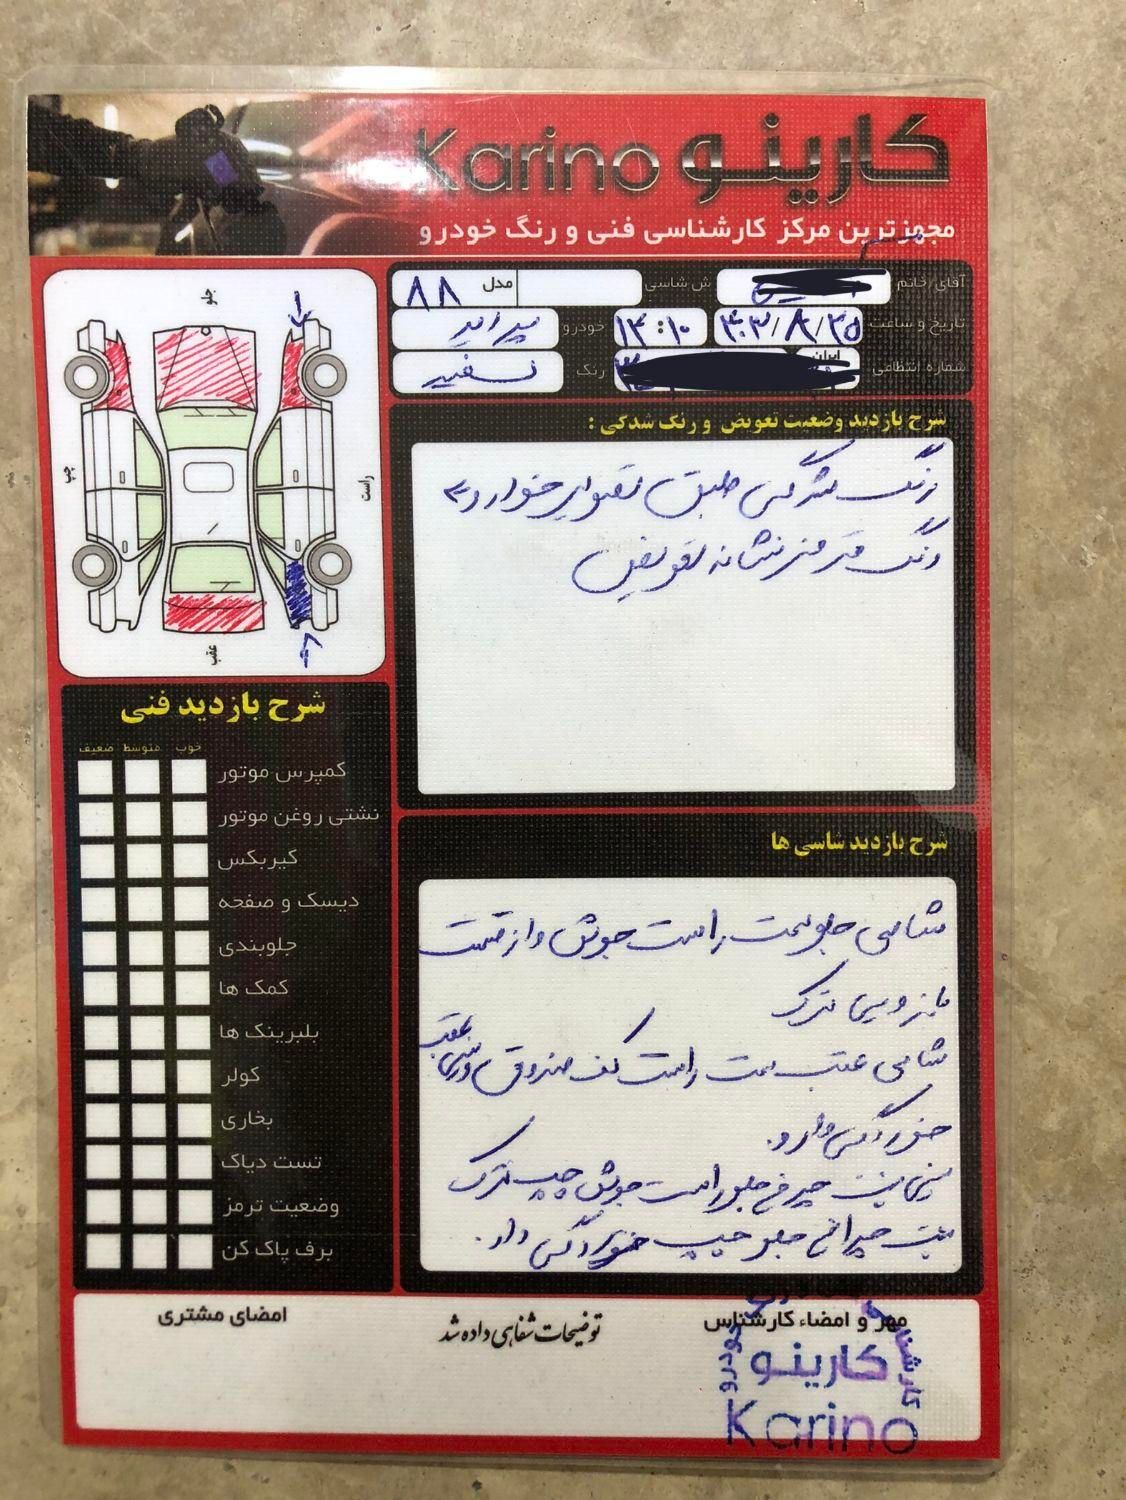 Karino کارینو
مجهزترین مرکز کارشناسی فنی و رنگ خودرو
آقای/خانم
ش شاسی
مدل ۸۸
تاریخ و ساعت ۴۰۳/۸/۳۵ ۱۴:۱۰
خودرو پراید
شماره انتظامی ایران
رنگ سفید
جلو
چپ
راست
عقب
شرح بازدید وضعیت تعویض و رنگ شدگی :
رنگ شدگی طبق تصویر خودرو
رنگ قرمز نشانه تعویض
شرح بازدید فنی
خوب متوسط ضعیف
کمپرس موتور
نشتی روغن موتور
گیربکس
دیسک و صفحه
جلوبندی
کمک ها
بلبرینگ ها
کولر
بخاری
تست دیاگ
وضعیت ترمز
برف پاک کن
شرح بازدید شاسی ها
شاسی جلو سمت راست جوش و از قسمت
ترک
شاسی عقب سمت راست کف صندوق عقب
خوردگی دارد.
چراغ جلو راست جوش چپ ترک
چراغ جلو چپ خوردگی دارد.
مهر و امضاء کارشناس
توضیحات شفاهی داده شد
امضای مشتری
کارشناسی
خودرو
کارینو
Karino